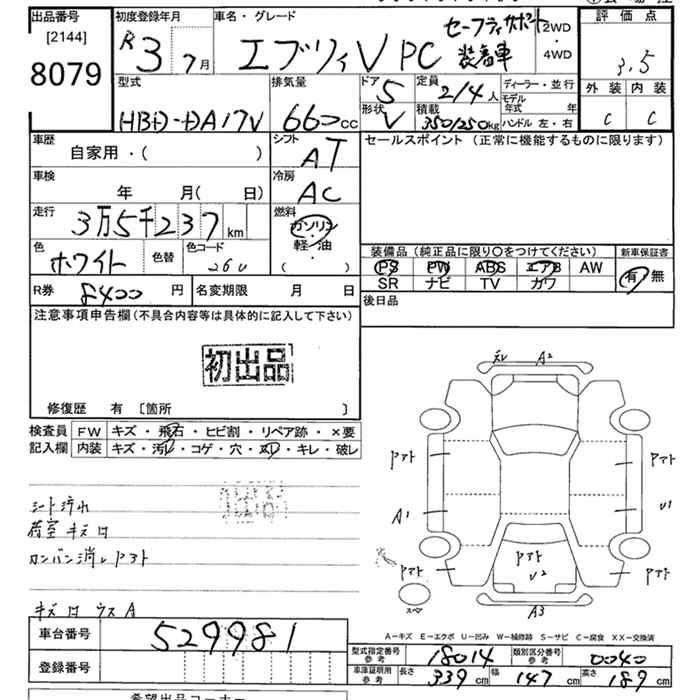 出品番号 初度登録年月 車名・グレード セーフティサポート 2WD 評価点
[2144] R3 7月 エブリィ V PC 装着車 4WD 3.5
8079
型式 排気量 ドア 5 定員 2/4人 ディーラー・並行 外装 内装
HBD-DA17V 660cc 形状 V 積載 350/250kg モデル年式 年 C C
ハンドル 左・右
車歴 シフト セールスポイント (正常に機能するものに限ります)
自家用・( ) AT
車検 冷房
年 月( 日) AC
走行 燃料
3万5千237km ガソリン
色 色替 色コード ・
ホワイト 26U 軽・油
( )
装備品(純正品に限り○をつけてください) 新車保証書
PS PW ABS エアB AW 有・無
SR ナビ TV カワ
R券 8400円 名変期限 月 日 後日品
注意事項申告欄(不具合内容等は具体的に記入して下さい)
初出品
修復歴 有 [箇所 ]
検査員 FW キズ・飛石・ヒビ割・リペア跡・×要
記入欄 内装 キズ・汚レ・コゲ・穴・スレ・キレ・破レ
シート汚れ
荷室キズ凹
カンバン消しアト
キズ凹ウスA
A2
アマト アマト
A1 U1
アマト アマト アマト
U2
スペア A3
A-キズ E-エクボ U-凹み W-補修跡 S-サビ C-腐食 XX-交換済
車台番号 529981
登録番号
型式指定番号 参考 18014 類別区分番号 参考 0040
車庫証明用 参考 長さ 339cm 幅 147cm 高さ 189cm
希望出品コーナー